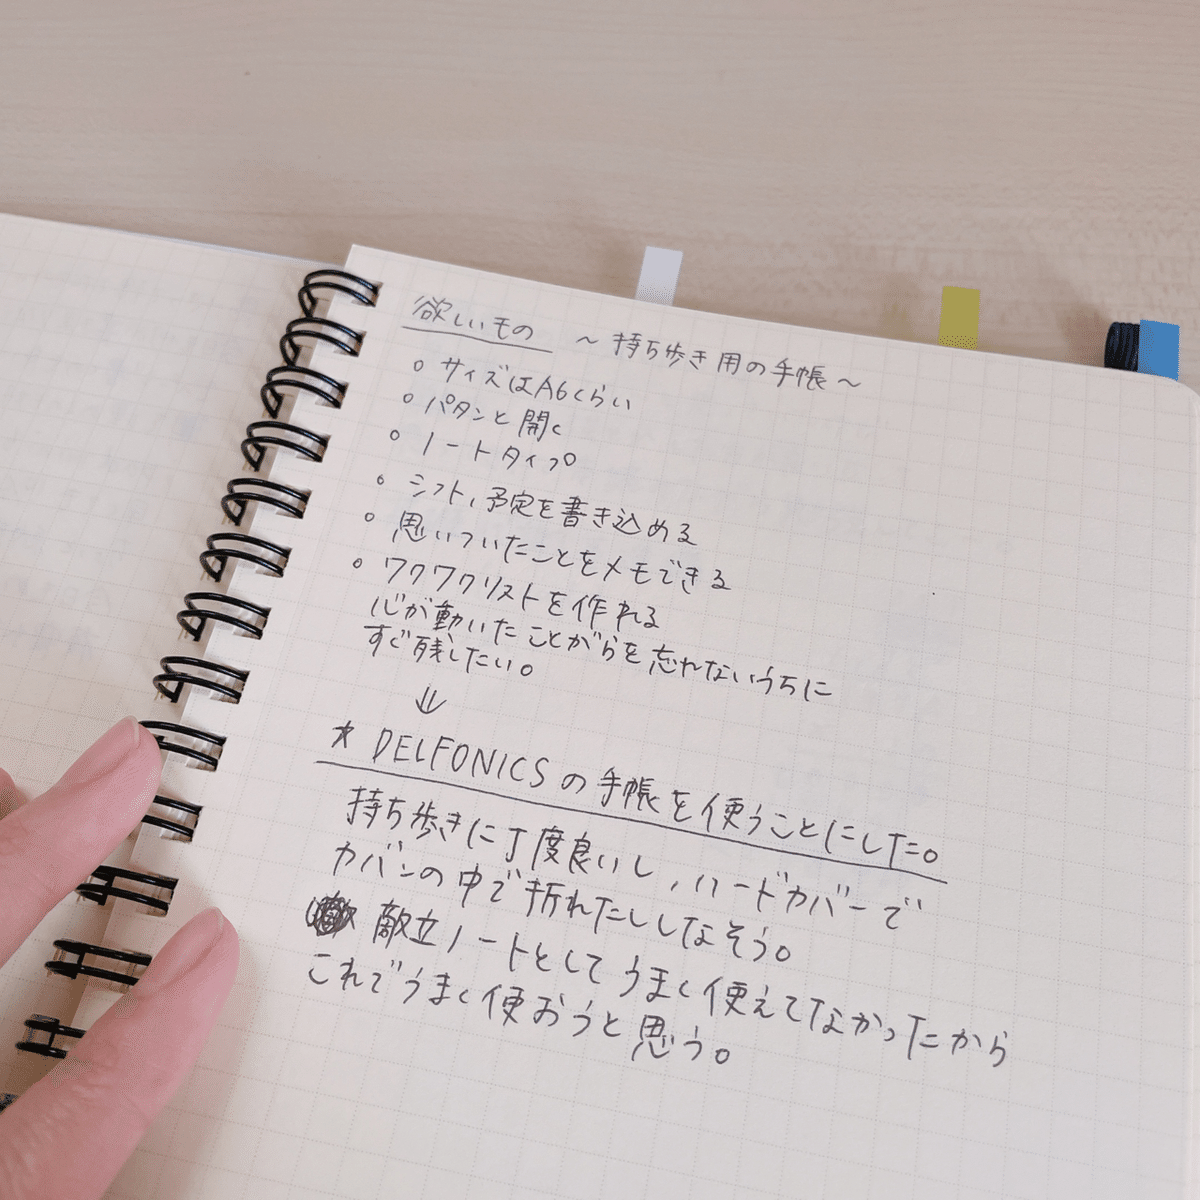 欲しいもの ～持ち歩き用の手帳～
○ サイズはA6くらい
○ パタンと開く
○ ノートタイプ
○ シフト、予定を書き込める
○ 思いついたことをメモできる
○ ワクワクリストを作れる
心が動いたことがらを忘れないうちに
すぐ残したい。
↓
* DELFONICSの手帳を使うことにした。
持ち歩きに丁度良いし、ハードカバーで
カバンの中で折れたりしなそう。
献立ノートとしてうまく使えてなかったから
これでうまく使おうと思う。